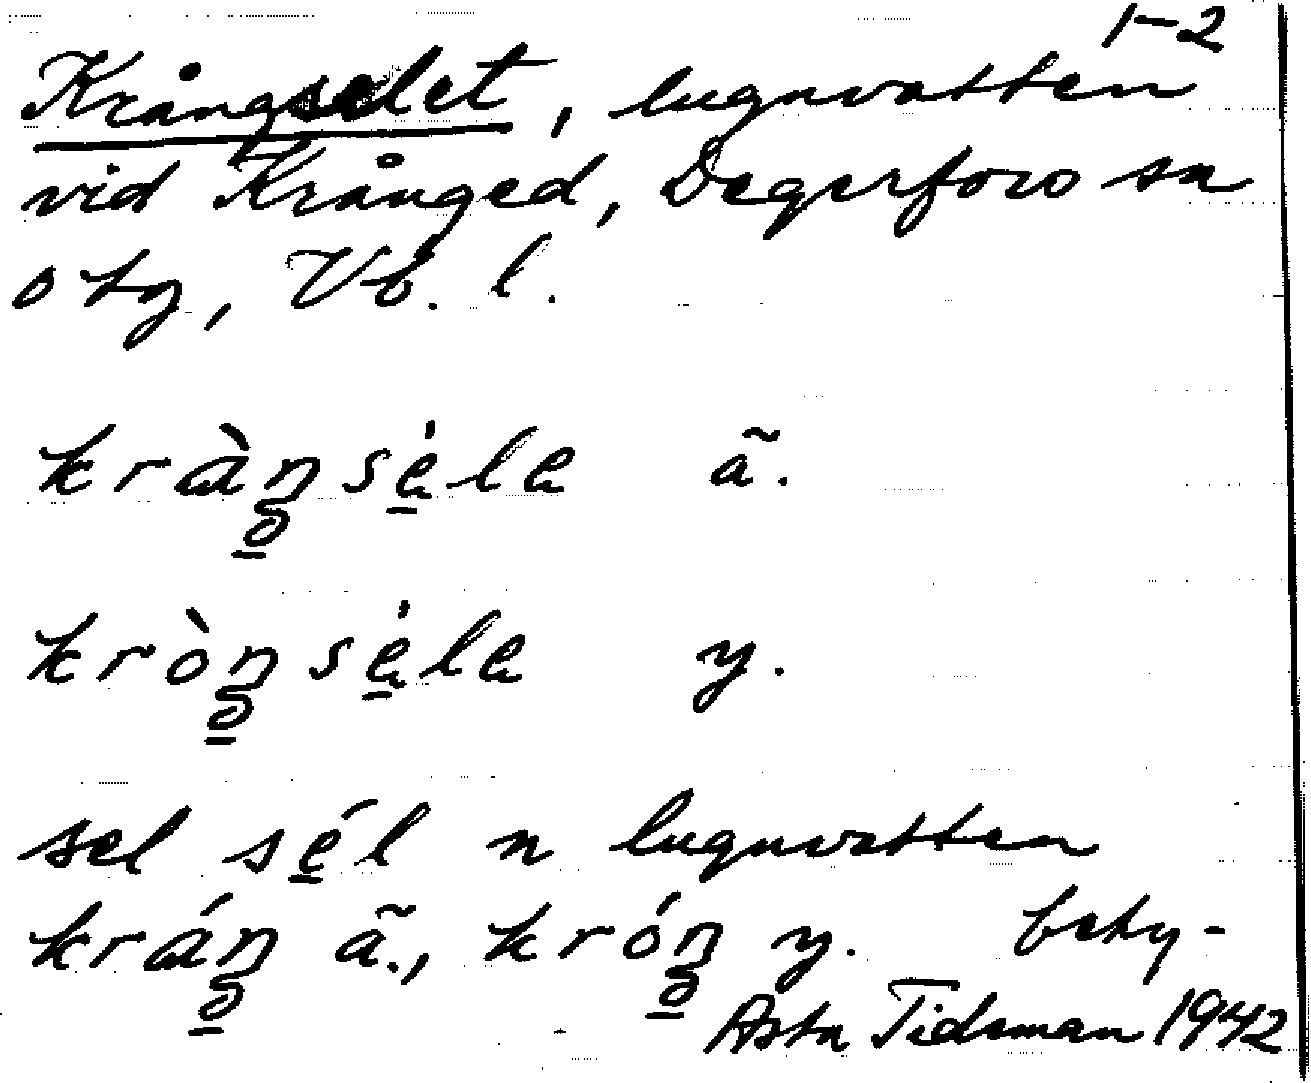 1-2
Krångselet, lugnvatten
vid Krånged, Degerfors sn
o tg, Vb. l.
kràŋsėle ã.
kròŋsėle y.
sel sél n lugnvatten
kráŋ ã., króŋ y. bety-
Asta Tidsman 1942